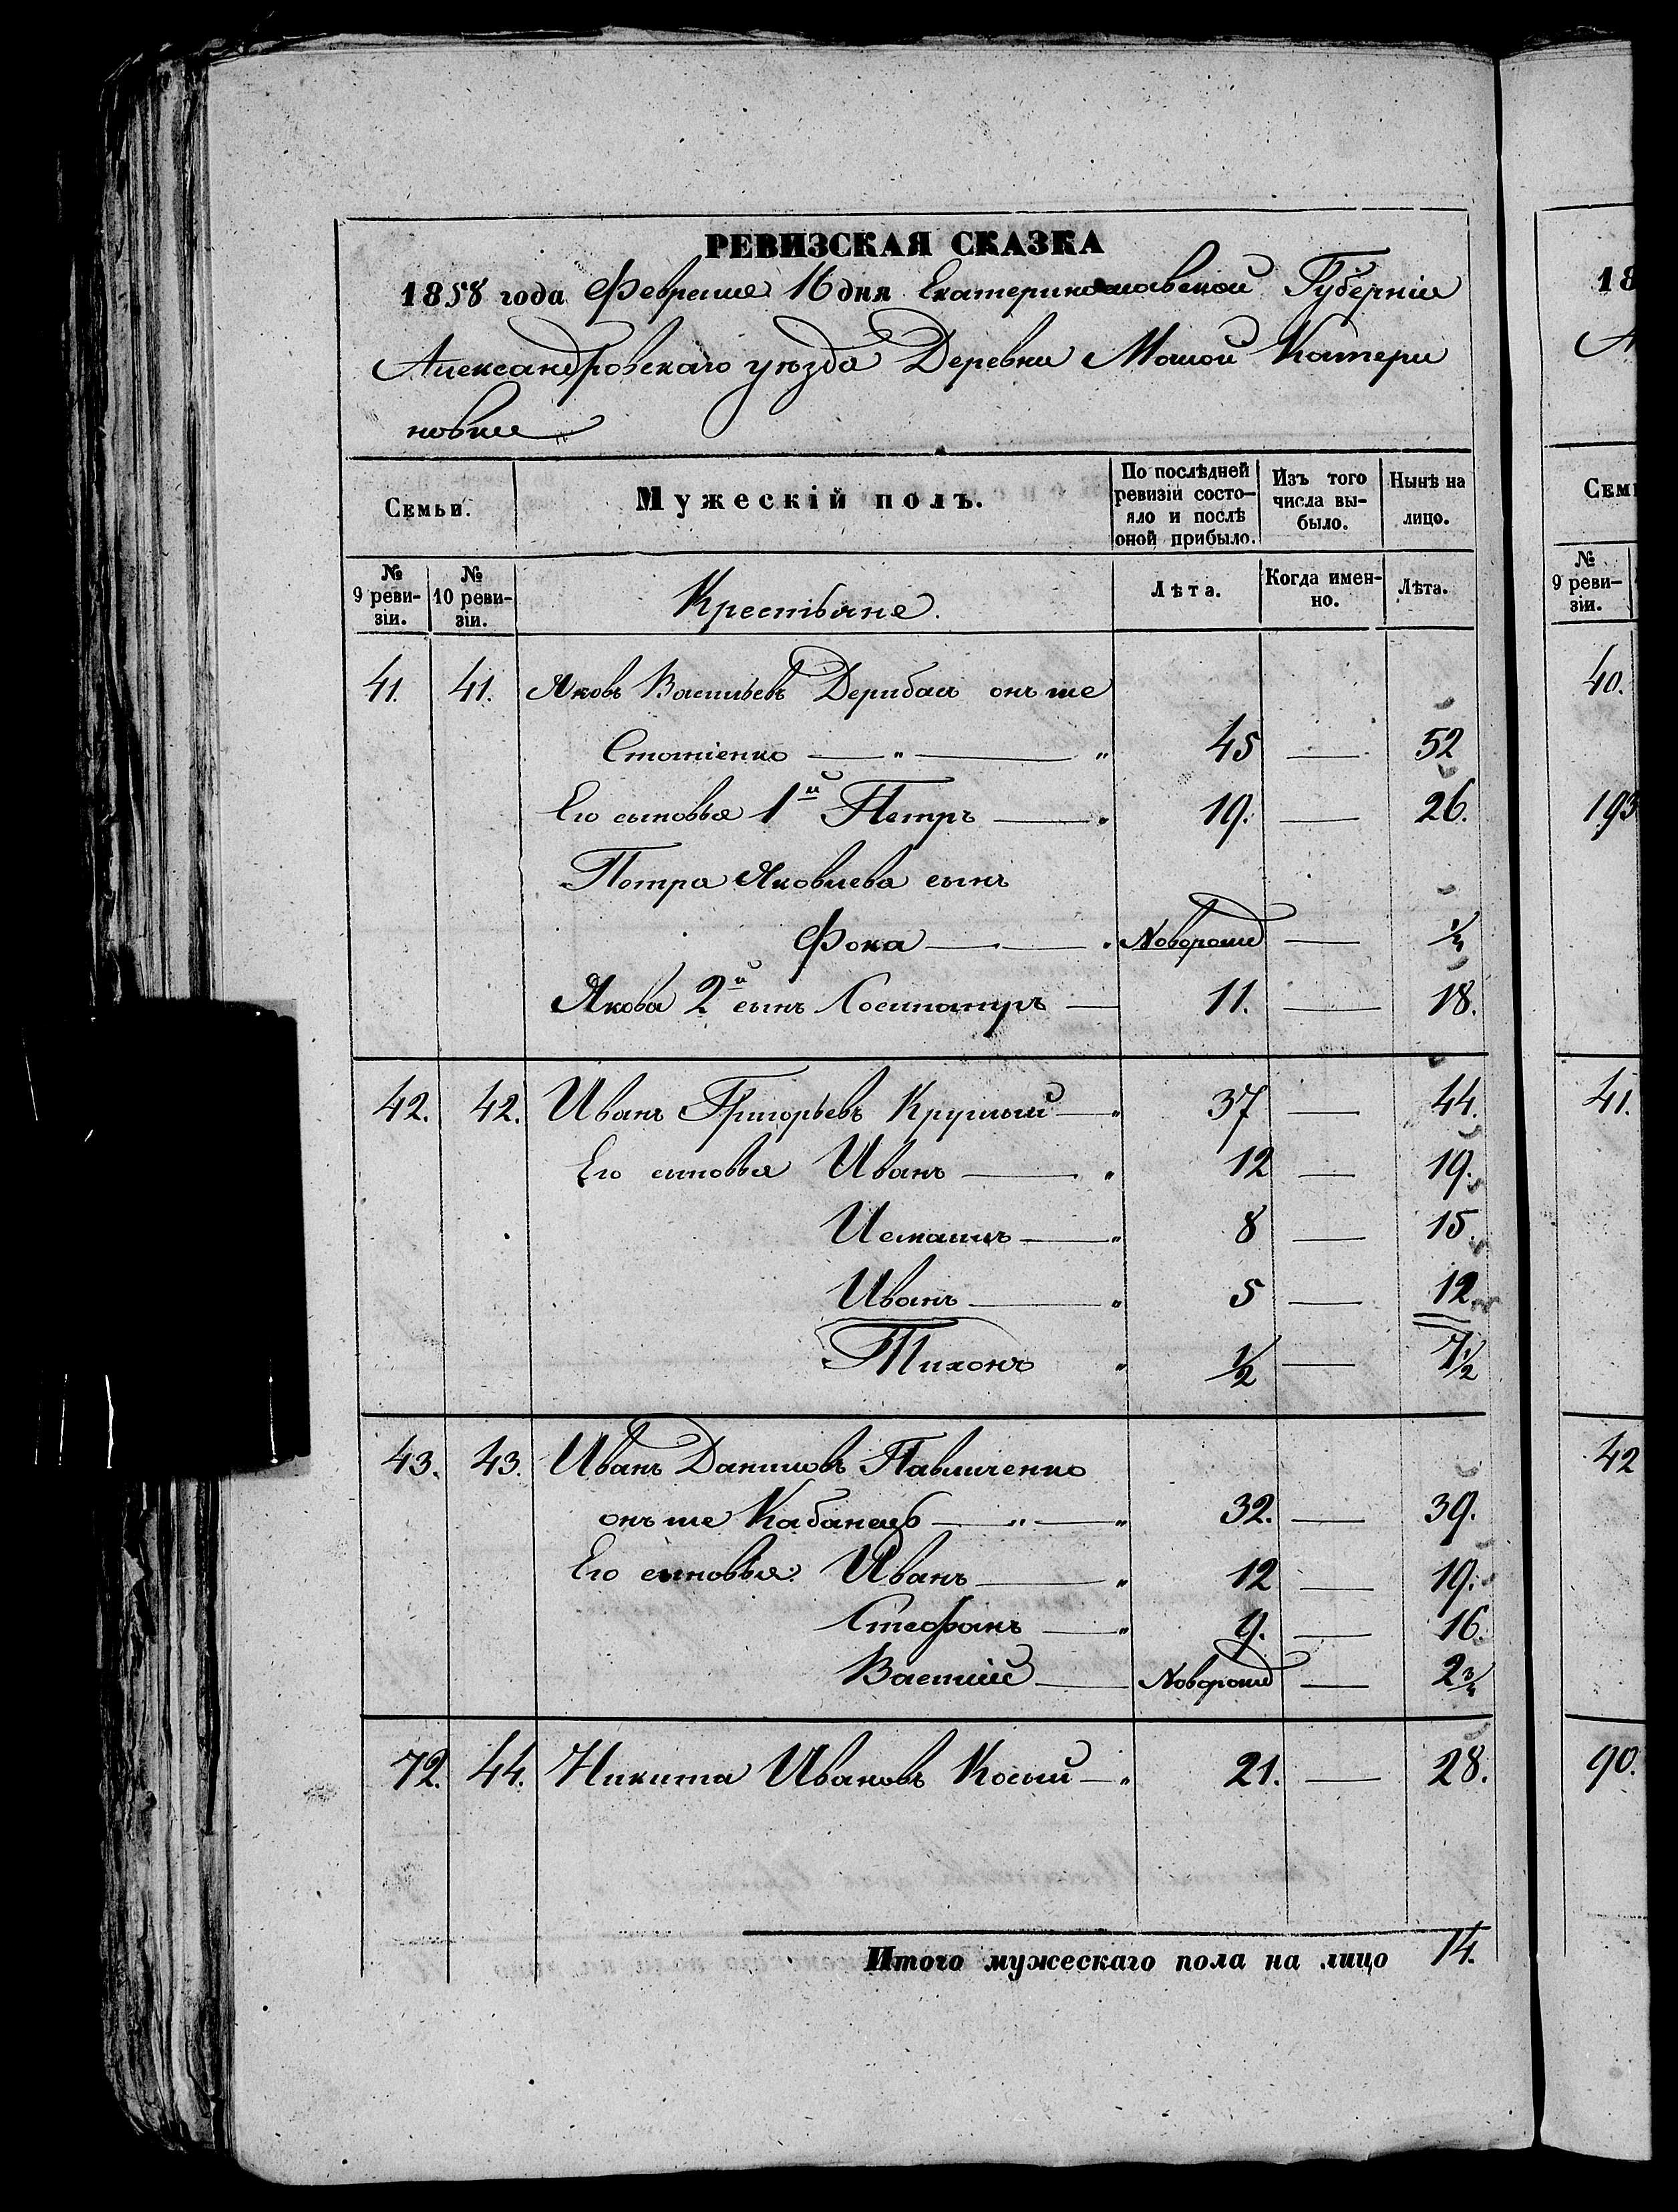 РЕВИЗСКАЯ СКАЗКА
1858 года Февраля 16 дня Екатеринославской Губерніи
Александровскаго уѣзда Деревни Малой Катери
новки
Семьи.
Мужескій полъ.
По послѣдней ревизіи состо-яло и послѣ оной прибыло.
Изъ того числа вы-было.
Нынѣ на лицо.
№ 9 реви-зіи.
№ 10 реви-зіи.
Крестьяне.
Лѣта.
Когда имен-но.
Лѣта.
41. 41. Яковъ Васильевъ Дерибас онъ же
45 — 52
Его сыновья 1й Петръ — 19. — 26.
Петра Яковлева сынъ
Фока — Новорожд —
Якова 2й сынъ Сосипатръ — 11. — 18.
42. 42. Иванъ Григорьевъ Круглый — 37 — 44.
Его сыновья Иванъ — 12 — 19.
8 — 15.
Иванъ — 5 — 12.
Тихонъ 1/2 — 7 1/2
43. 43. Иванъ Даниловъ Павличенко
онъ же Кабанецъ — 32. — 39.
Его сыновья Иванъ — 12 — 19.
Стефанъ — 9. — 16.
Василій — Новорожд — 2 3/4
72. 44. Никита Ивановъ Косый — 21. — 28.
Итого мужескаго пола на лицо 14.
18
А
Сем
№ 9 реви-зіи.
40.
193
41.
42
90.